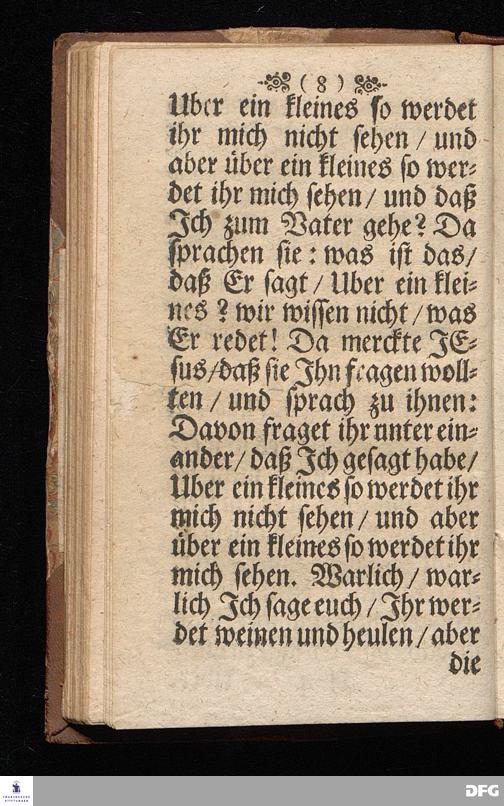 ( 8 )
Uber ein kleines so werdet
ihr mich nicht sehen / und
aber über ein kleines so wer⸗
det ihr mich sehen / und daß
Ich zum Vater gehe? Da
sprachen sie : was ist das /
daß Er sagt / Uber ein klei⸗
nes ? wir wissen nicht / was
Er redet! Da merckte JE⸗
sus / daß sie Ihn fragen woll⸗
ten / und sprach zu ihnen:
Davon fraget ihr unter ein⸗
ander / daß Ich gesagt habe /
Uber ein kleines so werdet ihr
mich nicht sehen / und aber
über ein kleines so werdet ihr
mich sehen. Warlich / war⸗
lich Ich sage euch / Ihr wer⸗
det weinen und heulen / aber
die
FRANCKESCHE
STIFTUNGEN
DFG